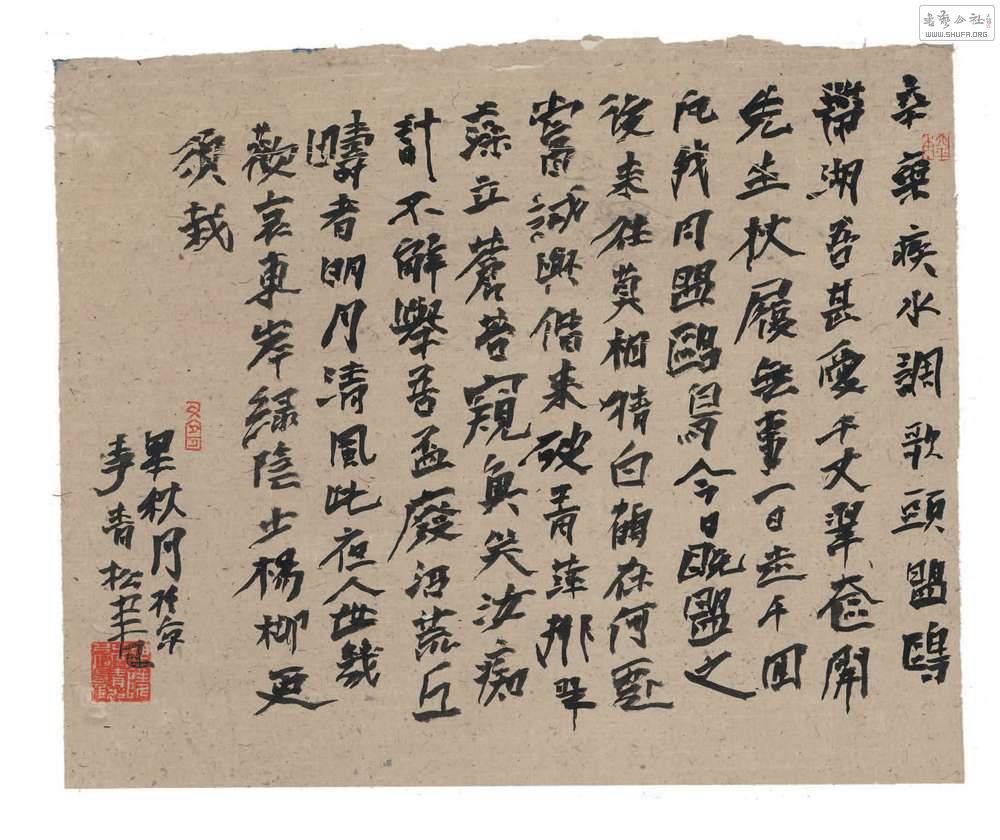 書藝公社
WWW.SHUFA.ORG
辛棄疾水調歌頭盟鷗
帶湖吾甚愛千丈翠奩開
先生杖履無事一日走千回
凡我同盟鷗鳥今日既盟之
後來往莫相猜白鶴在何處
嘗試與偕來破青萍排翠
藻立蒼苔窺魚笑汝痴
計不解舉吾盃廢沼荒丘
疇者明月清風此夜人世幾
歡哀東岸綠陰少楊柳更
須栽
秋月於京
李青松書